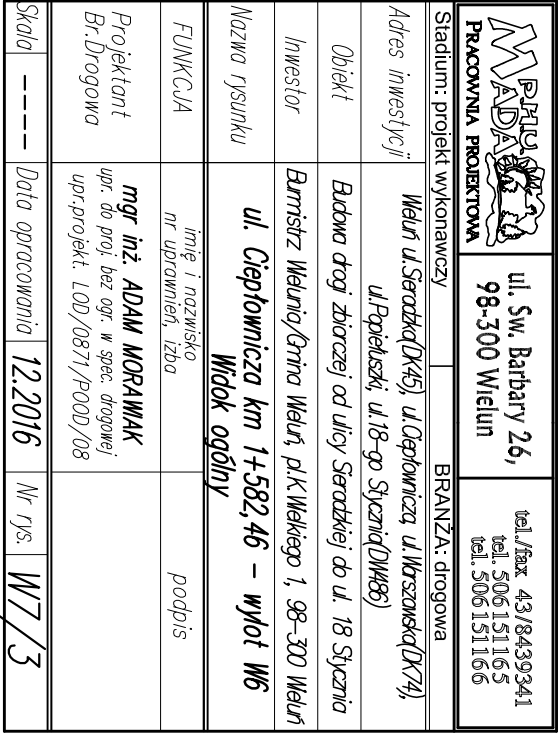 P.H.U.
MADA
PRACOWNIA PROJEKTOWA
ul. Sw. Barbary 26,
98-300 Wielun
tel./fax 43/8439341
tel. 506151165
tel. 506151166
Stadium: projekt wykonawczy
BRANŻA: drogowa
Adres inwestycji
Weluń ul.Sieradzka(DK45), ul.Ciepłownicza, ul.Warszawska(DK74),
ul.Popiełuszki, ul.18-go Stycznia(DW486)
Obiekt
Budowa drogi zbiorczej od ulicy Sieradzkiej do ul. 18 Stycznia
Inwestor
Burmistrz Welunia/Gmina Weluń, pl.K.Welkiego 1, 98-300 Weluń
Nazwa rysunku
ul. Ciepłownicza km 1+582,46 - wylot W6
Widok ogólny
FUNKCJA
imię i nazwisko
nr uprawnień, izba
podpis
Projektant
Br.Drogowa
mgr inż. ADAM MORAWIAK
upr. do proj. bez ogr. w spec. drogowej
upr.projekt. LOD/0871/POOD/08
Skala
----
Data opracowania
12.2016
Nr rys.
W7/3